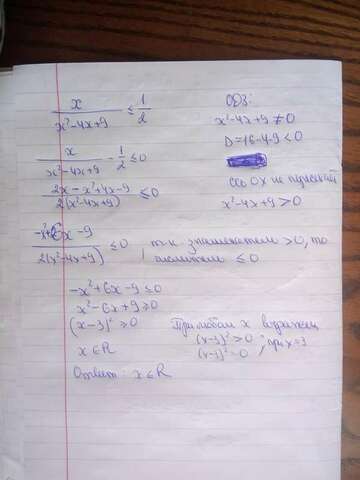 x / (x²-4x+9) ≤ 1/2
ОДЗ:
x²-4x+9 ≠ 0
D=16-4·9 < 0
ось OX не пересекает
x²-4x+9 > 0
x / (x²-4x+9) - 1/2 ≤ 0
(2x - x²+4x-9) / (2(x²-4x+9)) ≤ 0
(-x²+6x-9) / (2(x²-4x+9)) ≤ 0
т.к знаменатель >0, то
числитель ≤ 0
-x²+6x-9 ≤ 0
x²-6x+9 ≥ 0
(x-3)² ≥ 0
x ∈ R
При любом x
(x-3)² > 0
(x-3)² = 0, при x=3
Ответ: x ∈ R